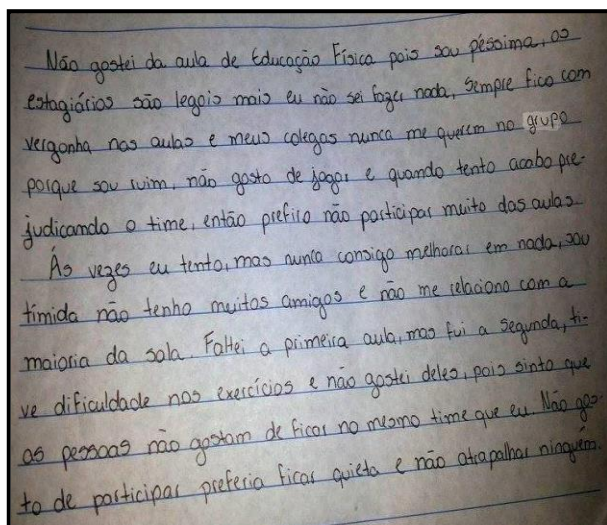 Não gostei da aula de Educação Física pois sou péssima, os
estagiários são legais mais eu não sei fazer nada, sempre fico com
vergonha nas aulas e meus colegas nunca me querem no grupo
porque sou ruim, não gosto de jogar e quando tento acabo pre-
judicando o time, então prefiro não participar muito das aulas.
Às vezes eu tento, mas nunca consigo melhorar em nada, sou
tímida não tenho muitos amigos e não me relaciono com a
maioria da sala. Faltei a primeira aula, mas fui a segunda, ti-
ve dificuldade nos exercícios e não gostei deles, pois sinto que
as pessoas não gostam de ficar no mesmo time que eu. Não gos-
to de participar preferia ficar quieta e não atrapalhar ninguém.